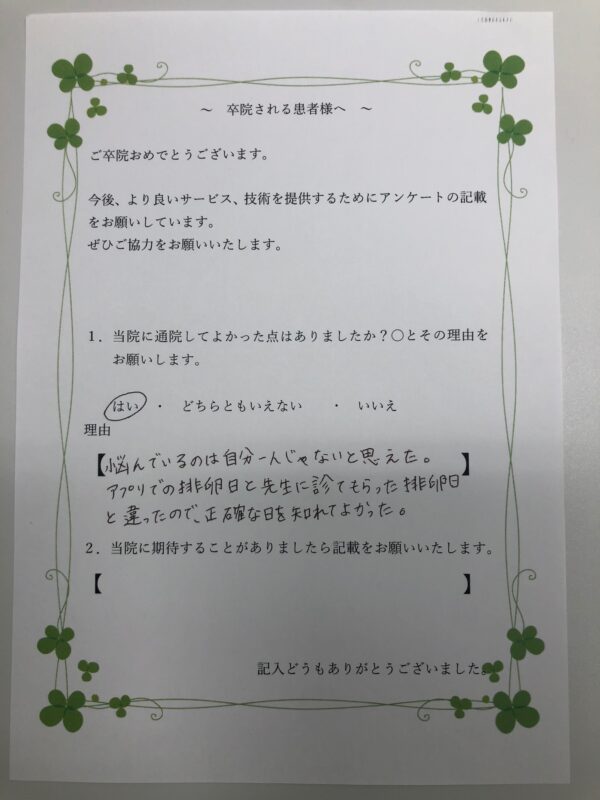 ～　卒院される患者様へ　～
ご卒院おめでとうございます。
今後、より良いサービス、技術を提供するためにアンケートの記載
をお願いしています。
ぜひご協力をお願いいたします。
１．当院に通院してよかった点はありましたか？〇とその理由を
お願いします。
はい　・　どちらともいえない　・　いいえ
理由
【悩んでいるのは自分一人じゃないと思えた。】
アプリでの排卵日と先生に診てもらった排卵日
と違ったので、正確な日を知れてよかった。
２．当院に期待することがありましたら記載をお願いいたします。
【　】
記入どうもありがとうございました。